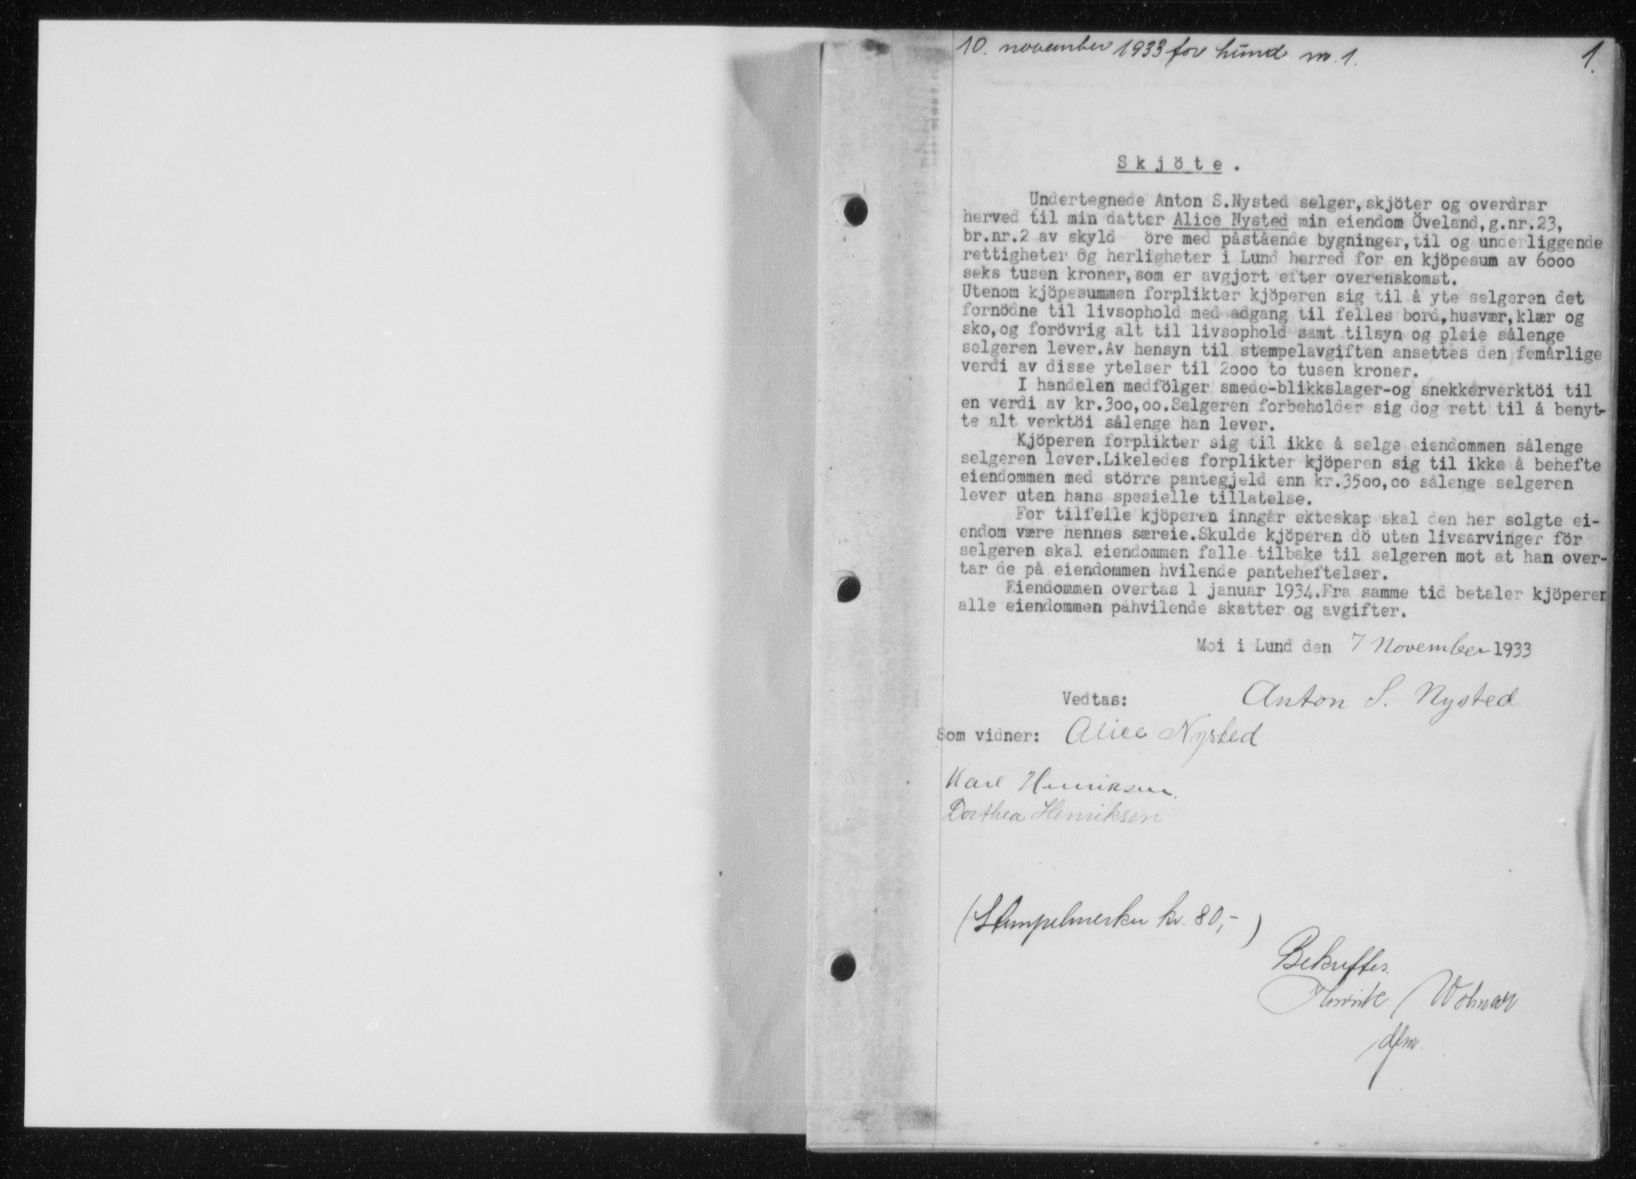 10. november 1933 for Lund nr. 1. 1.
Skjöte.
Undertegnede Anton S.Nysted selger,skjöter og overdrar
herved til min datter Alice Nysted min eiendom Öveland,g.nr.23,
br.nr.2 av skyld öre med påstående bygninger,til og underliggende
rettigheter og herligheter i Lund herred for en kjöpesum av 6000
seks tusen kroner,som er avgjort efter overenskomst.
Utenom kjöpesummen forplikter kjöperen sig til å yte selgeren det
fornödne til livsophold med adgang til felles bord,husvær,klær og
sko,og forövrig alt til livsophold samt tilsyn og pleie sålenge
selgeren lever.Av hensyn til stempelavgiften ansettes den femårlige
verdi av disse ytelser til 2000 to tusen kroner.
I handelen medfölger smede-blikkslager-og snekkerverktöi til
en verdi av kr.300,00.Selgeren forbeholder sig dog rett til å benyt-
te alt verktöi sålenge han lever.
Kjöperen forplikter sig til ikke å selge eiendommen sålenge
selgeren lever.Likeledes forplikter kjöperen sig til ikke å behefte
eiendommen med större pantegjeld enn kr.3500,00 sålenge selgeren
lever uten hans spesielle tillatelse.
For tilfelle kjöperen inngår ekteskap skal den her solgte ei-
endom være hennes særeie.Skulde kjöperen dö uten livsarvinger för
selgeren skal eiendommen falle tilbake til selgeren mot at han over-
tar de på eiendommen hvilende panteheftelser.
Eiendommen overtas 1 januar 1934.Fra samme tid betaler kjöperen
alle eiendommen påhvilende skatter og avgifter.
Moi i Lund den 7 November 1933
Vedtas: Anton S. Nysted
Som vidner: Alice Nysted
Karl Henriksen
Dorthea Henriksen
(Stempelmerker kr. 80,-)
Bekreftes